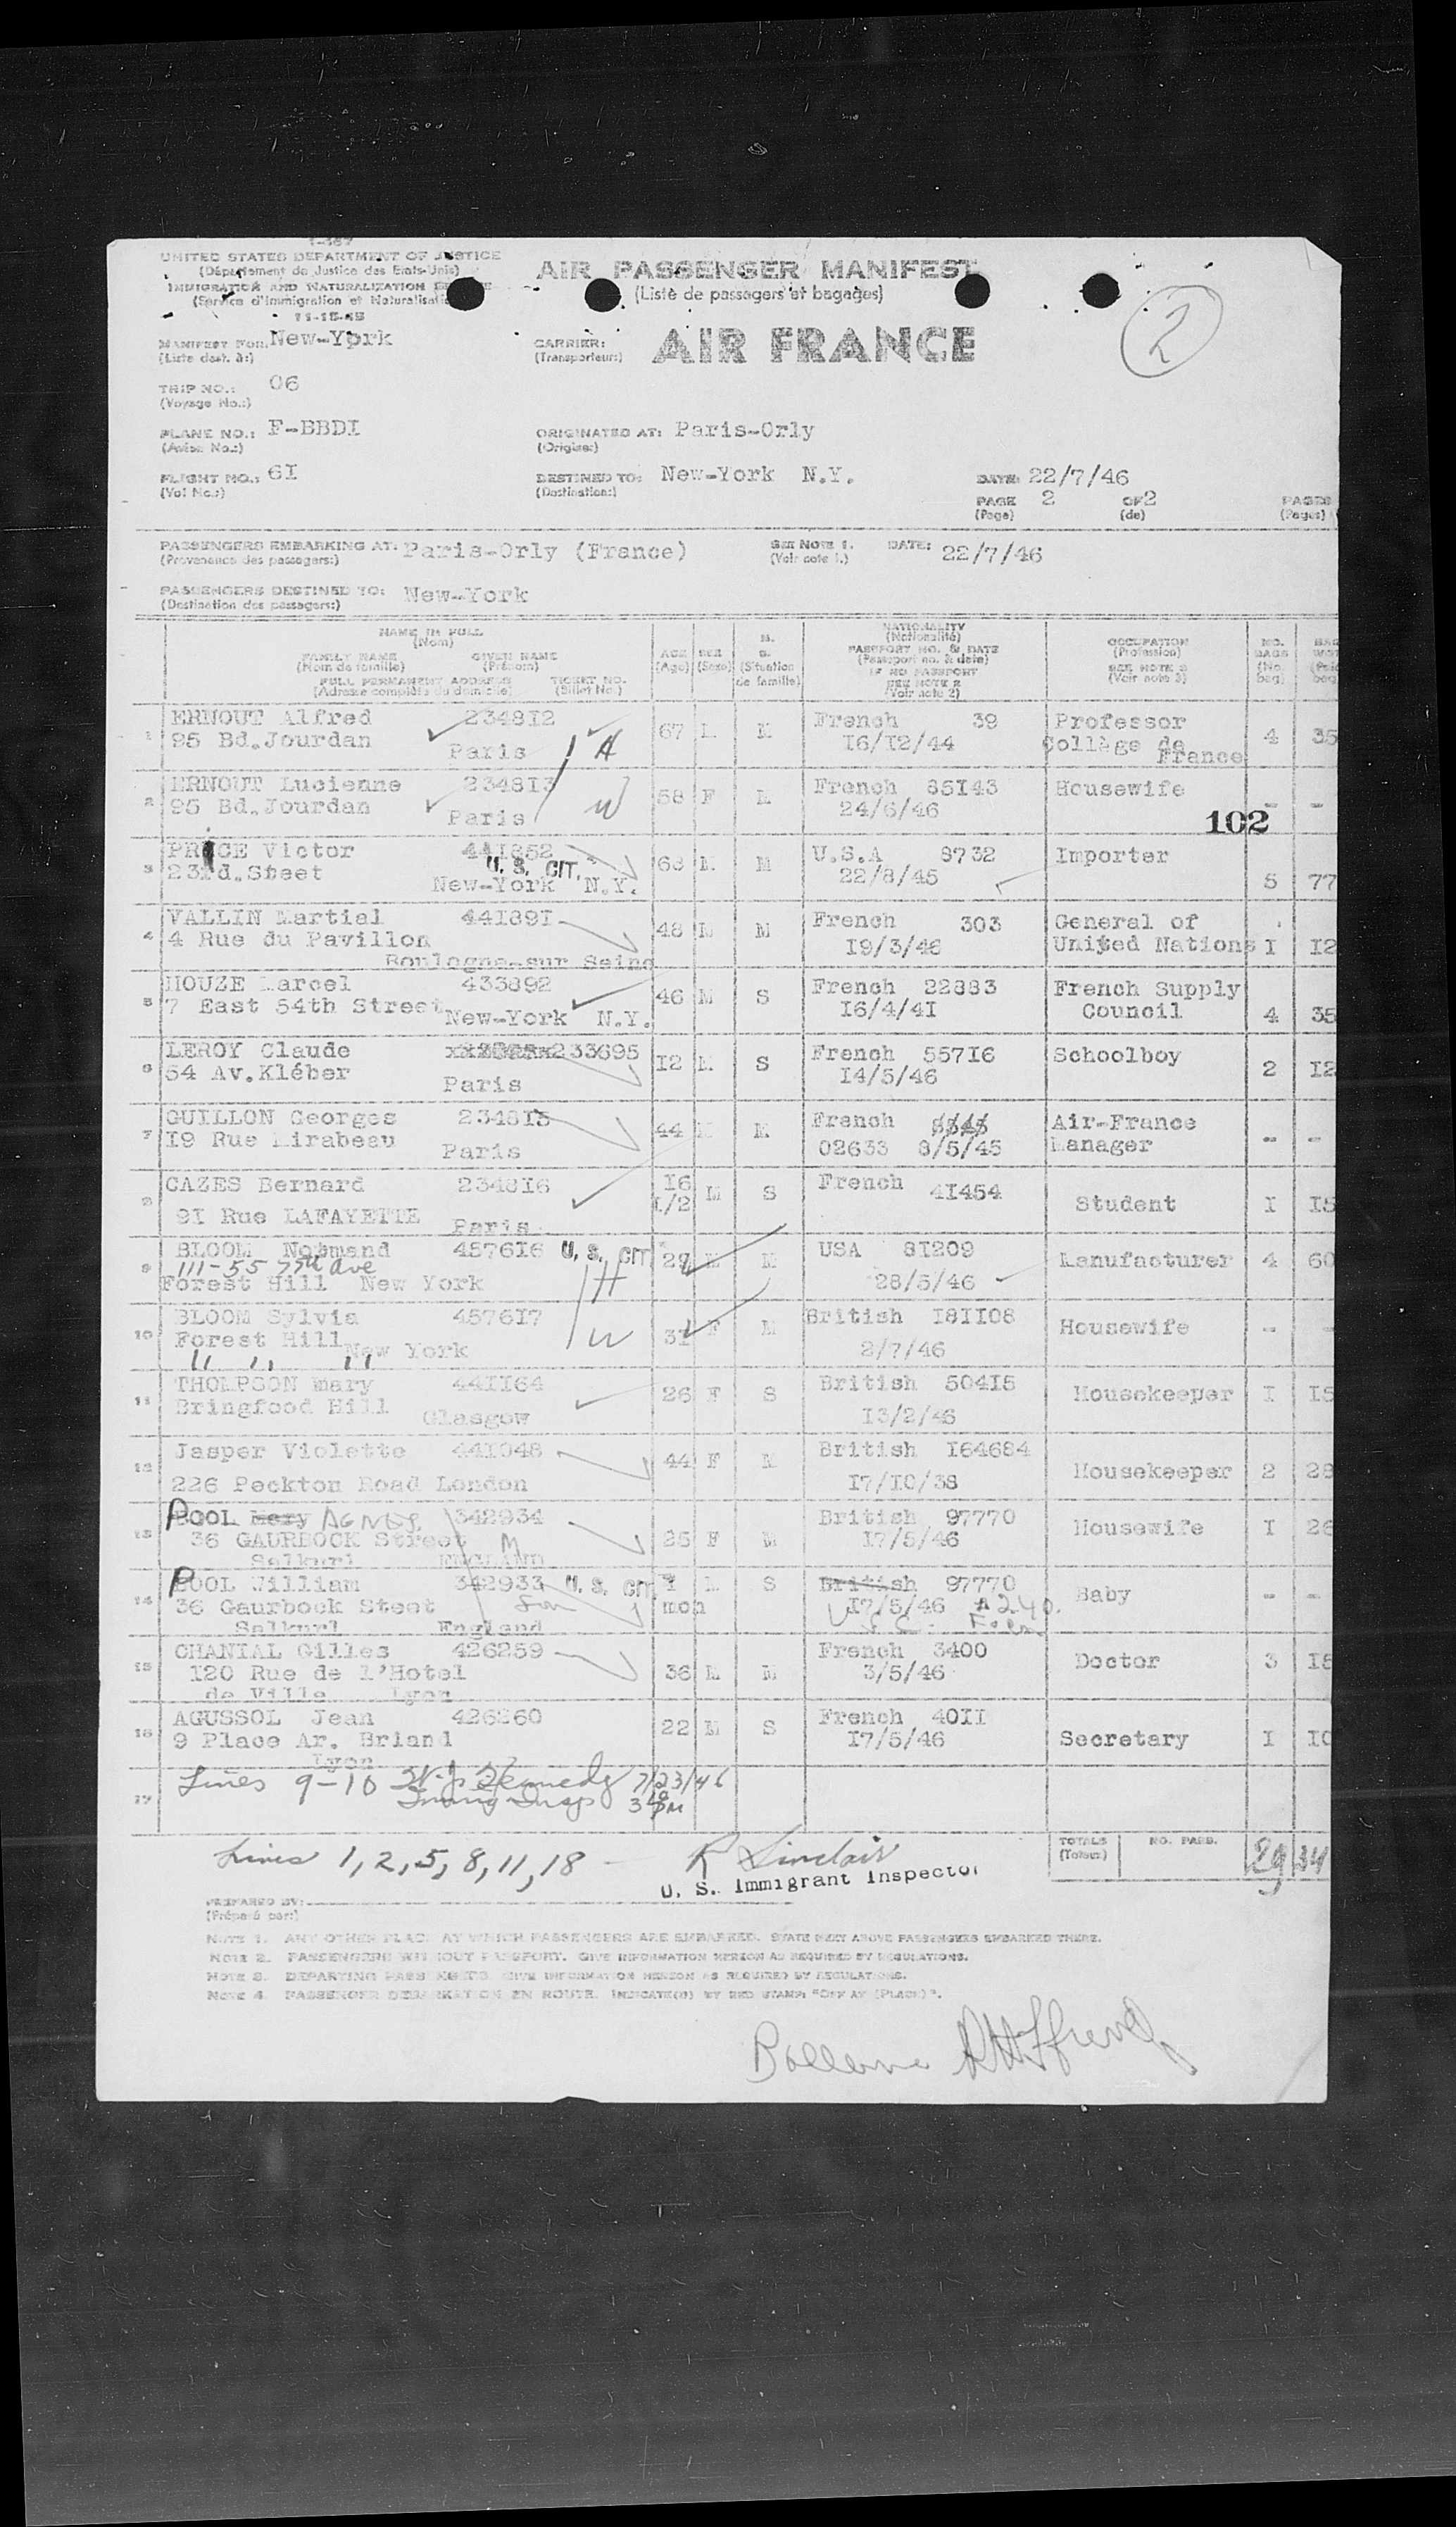 I-467
UNITED STATES DEPARTMENT OF JUSTICE
(Département de Justice des Etats-Unis)
IMMIGRATION AND NATURALIZATION
(Service d'Immigration et Naturalisation
11-15-45
AIR PASSENGER MANIFEST
(Listè de passagers et bagages)
2
MANIFEST FOR: New-York
(Liste dest. à:)
CARRIER: AIR FRANCE
(Transporteur:)
TRIP NO.: 06
(Voyage No.:)
PLANE NO.: F-BBDI
(Avion No.:)
ORIGINATED AT: Paris-Orly
(Origine:)
FLIGHT NO.: 6I
(Vol No.:)
DESTINED TO: New-York N.Y.
(Destination:)
DATE: 22/7/46
PAGE 2 OF 2 PAGES
(Page) (de) (Pages)
PASSENGERS EMBARKING AT: Paris-Orly (France)
(Provenance des passagers:)
SEE NOTE 1. DATE: 22/7/46
(Voir note 1.)
PASSENGERS DESTINED TO: New-York
(Destination des passagers:)
NAME IN FULL
(Nom)
FAMILY NAME GIVEN NAME
(Nom de famille) (Prénom)
FULL PERMANENT ADDRESS TICKET NO.
(Adresse complète du domicile) (Billet No.)
AGE
(Age)
SEX
(Sexe)
M.
S.
(Situation
de famille)
NATIONALITY
(Nationalité)
PASSPORT NO. & DATE
(Passeport no. & date)
IF NO PASSPORT
SEE NOTE 2
(Voir note 2)
OCCUPATION
(Profession)
SEE NOTE 3
(Voir note 3)
NO.
BAGS
(No.
bag)
1 ERNOUT Alfred 234812 67 M French 39 Professor 4 35
95 Bd.Jourdan Paris H 16/I2/44 Collège de
France
2 ERNOUT Lucienne 234813 58 F French 85I43 Housewife - -
95 Bd.Jourdan Paris W 24/6/46
102
3 PRICE Victor 441852 M U.S.A 8732 Importer 5 77
23rd.Steet U. S. CIT. New-York N.Y. 22/8/45
4 VALLIN Martial 44I89I 48 M M French 303 General of
4 Rue du Pavillon I9/3/46 United Nations I I2
Boulogne-sur Seine
5 HOUZE Marcel 433892 46 M S French 22883 French Supply
7 East 54th Street New-York N.Y. I6/4/4I Council 4 35
6 LEROY Claude 233695 I2 M S French 557I6 Schoolboy 2 I2
54 Av.Kléber Paris I4/5/46
7 GUILLON Georges 2348I5 44 M M French Air-France - -
I9 Rue Mirabeau Paris 02633 8/5/45 Manager
8 CAZES Bernard 2348I6 I6 I/2 M S French 4I454 Student I I5
9I Rue LAFAYETTE Paris
9 BLOOM Normand 4576I6 U. S. CIT. 29 M USA 8I209 Manufacturer 4 60
111-55 77th Ave
Forest Hill New York H 28/5/46
10 BLOOM Sylvia 4576I7 3I F M British I8II08 Housewife - -
Forest Hill New York W 2/7/46
" " "
11 THOMPSON Mary 44II64 26 F S British 504I5 Housekeeper I I5
Bringfood Hill Glasgow I3/2/46
12 Jasper Violette 44I048 44 F M British I64684 Housekeeper 2 28
226 Peckton Road London I7/I0/38
13 POOL Mary AGNES 342934 25 F M British 97770 Housewife I 26
36 GAURBOCK Street M I7/5/46
Salkurl ENGLAND
14 POOL William 342933 U. S. CIT. I mon S British 97770 Baby - -
36 Gaurbock Steet Son I7/5/46 #240.
Salkurl England U.S.C.
15 CHANIAL Gilles 426259 36 M M French 3400 Doctor 3 I5
I20 Rue de l'Hotel 3/5/46
de Ville Lyon
16 AGUSSOL Jean 426260 22 M S French 40II Secretary I I0
9 Place Ar. Briand I7/5/46
Lyon
17 Lines 9-10 Kennedy 7/23/46
Immig Insp
Lines 1, 2, 5, 8, 11, 18 - R Sinclair
U. S. Immigrant Inspector
TOTALS NO. PASS. 29 34
(Totaux)
PREPARED BY:
(Préparé par:)
NOTE 1. ANY OTHER PLACE AT WHICH PASSENGERS ARE EMBARKED. STATE NEXT ABOVE PASSENGERS EMBARKED THERE.
NOTE 2. PASSENGERS WITHOUT PASSPORT. GIVE INFORMATION HEREON AS REQUIRED BY REGULATIONS.
NOTE 3. DEPARTING PASSENGERS. GIVE INFORMATION HEREON AS REQUIRED BY REGULATIONS.
NOTE 4. PASSENGER DEBARKATION EN ROUTE. INDICATE(D) BY RED STAMP: "OFF AT (PLACE)".